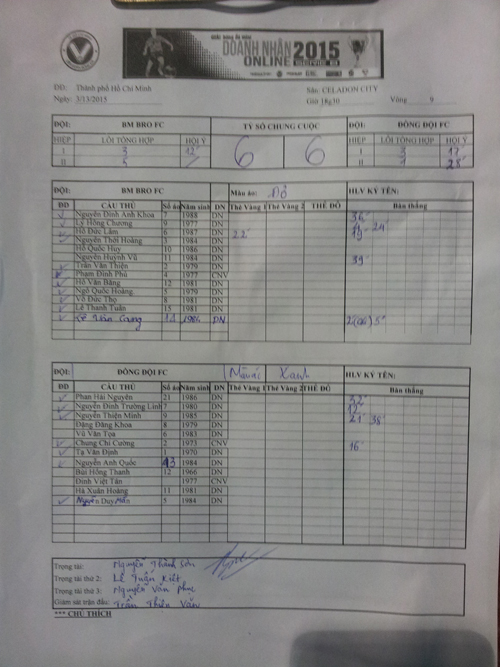 DOANH NHÂN 2015
ONLINE
ĐĐ: Thành phố Hồ Chí Minh Sân: CELADON CITY
Ngày: 3/13/2015 Giờ 18g30 Vòng 9
ĐỘI: BM BRO FC TỶ SỐ CHUNG CUỘC ĐỘI: ĐỒNG ĐỘI FC
HIỆP LỖI TỔNG HỢP HỘI Ý 6 6 HIỆP LỖI TỔNG HỢP HỘI Ý
I 3 12' I 3 17'
II II 28'
ĐỘI: BM BRO FC Màu áo: Đỏ HLV KÝ TÊN:
ĐD CẦU THỦ Số áo Năm sinh ĐN Thẻ Vàng 1 Thẻ Vàng 2 THẺ ĐỎ Bàn thắng
Nguyễn Đình Anh Khoa 7 1988 DN 36'
Lý Hồng Chương 9 1977 DN
Hồ Đức Lâm 6 1987 DN 22' 19' 24'
Nguyễn Thời Hoàng 3 1984 DN
Hồ Quốc Huy 10 1986 DN
Nguyễn Huỳnh Vũ 11 1984 DN 39'
Trần Văn Thiện 2 1979 DN
Phạm Đình Phú 4 1977 CNV
Hồ Văn Bằng 12 1981 DN
Ngô Quốc Hoàng 5 1979 DN
Võ Đức Thọ 8 1981 DN
Lê Thanh Tuấn 15 1981 DN
Lê Văn Cung 14 1984 DN
ĐỘI: ĐỒNG ĐỘI FC Xanh HLV KÝ TÊN:
ĐD CẦU THỦ Số áo Năm sinh ĐN Thẻ Vàng 1 Thẻ Vàng 2 THẺ ĐỎ Bàn thắng
Phan Hải Nguyên 21 1986 DN 32'
Nguyễn Đình Trường Linh 7 1980 DN 12'
Nguyễn Thiện Minh 9 1985 DN 21' 38'
Đặng Đăng Khoa 8 1979 DN
Vũ Văn Tọa 6 1983 DN
Chung Chí Cường 2 1973 CNV 16'
Tạ Văn Định 1 1970 DN
Nguyễn Anh Quốc 13 1984 DN
Bùi Hồng Thanh 12 1966 DN
Đinh Việt Tân 1977 CNV
Hà Xuân Hoàng 11 1981 DN
Nguyễn Duy Mẫn 5 1984 DN
Trọng tài: Nguyễn Thành Sơn
Trọng tài thứ 2: Lê Tuấn Kiệt
Trọng tài thứ 3: Nguyễn Văn Phục
Giám sát trận đấu: Trần Thiên Văn
*** CHÚ THÍCH